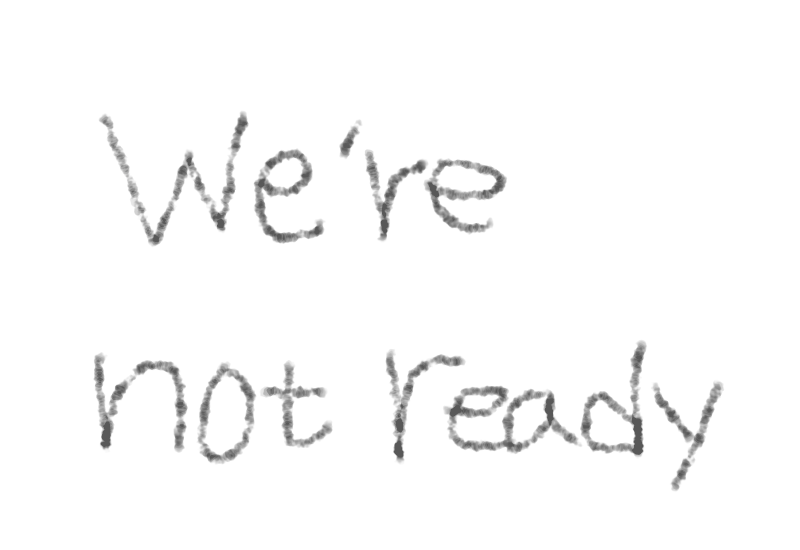 We're
not ready